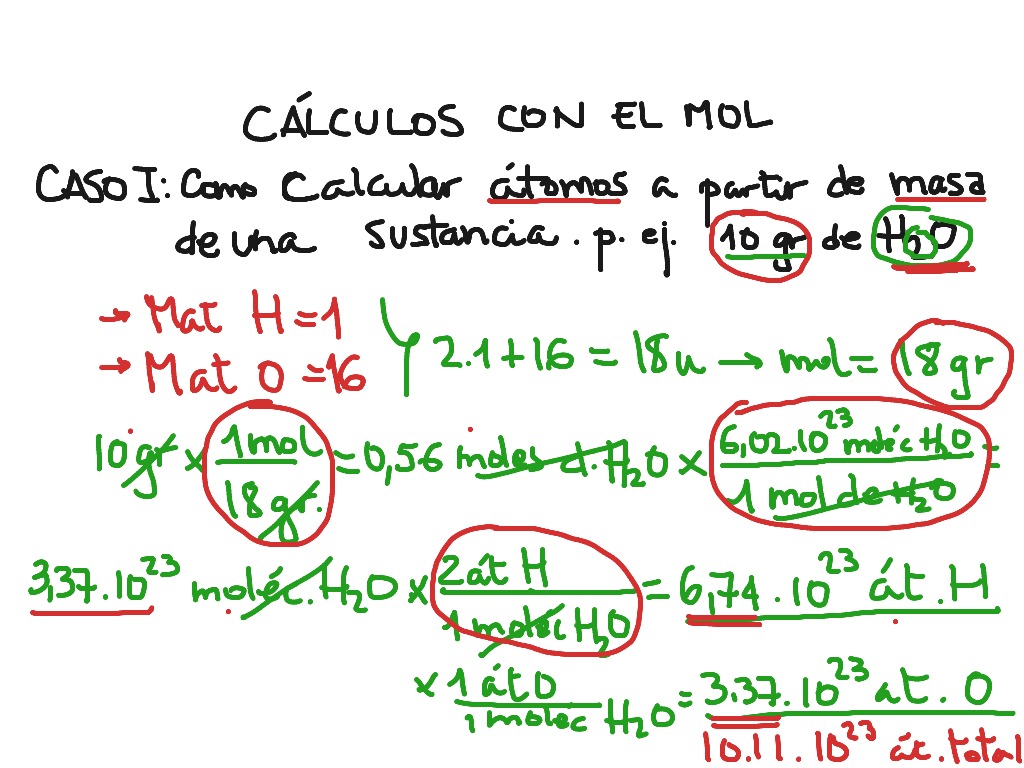 CÁLCULOS CON EL MOL
CASO I: Como Calcular átomos a partir de masa
de una sustancia. p. ej. 10 gr de H₂O
→ Mat H = 1
→ Mat O = 16
2.1+16 = 18u → mol = 18 gr
10 gr × 1 mol / 18 gr. = 0,56 moles d. H₂O × 6,02.10²³ moléc H₂O / 1 mol de H₂O =
3,37.10²³ moléc. H₂O × 2 át H / 1 moléc H₂O = 6,74.10²³ át. H
× 1 át O / 1 molec H₂O = 3,37.10²³ at. O
10.11.10²³ át. total